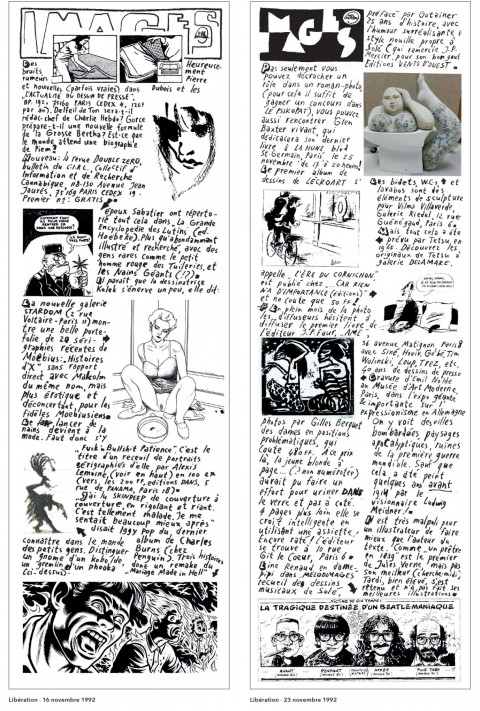 IMAGES
Des
bruits
rumeurs
et nouvelles (parfois vraies) dans
L'ACTUALITÉ DU DESSIN DE PRESSE
BP. 192. 75160 PARIS CEDEX 4, 120f
par an). Delfeil de Ton sera-t-il
rédac-chef de Charlie Hebdo? Gorce
prépare-t-il une nouvelle formule
de la Grosse Bertha? Est-ce que
le monde attend une biographie
de Piem?
Heureuse-
ment
Pierre
Dubois et les
Nouveau: la revue DOUBLE ZERO,
bulletin du C.I.R.C., Collectif d'
Information et de Recherche
Cannabique, 118-130 Avenue Jean
Jaurès, 75169 PARIS CEDEX 19.
Premier n°: GRATIS
époux Sabatier ont réperto-
rié tout cela dans La Grande
Encyclopédie des Lutins (ed.
Hoëbeke). Plus qu'abondamment
illustré et recherché, avec des
gens rares comme le petit
homme rouge des Tuileries, et
les Nains Géants (!?)
Il paraît que la dessinatrice
Kelek s'énerve un peu, elle dit:
La nouvelle galerie
STARDOM (2 rue
Voltaire - Paris 11) mon-
tre une belle porte-
folio de 20 séri-
graphies récentes de
Mœbius: "Histoires
d'X", sans rapport
direct avec Malkolm
du même nom, mais
plus érotique et
déconcertant, pour les
fidèles Mœbiusiens
Le lancer de
nains devient à la
mode. Faut donc s'y
"Fuck'n Bullshit Patience". C'est le
titre d'un recueil de portraits
sérigraphiés d'elle par Alexis
Lemoine, (voir en haut) en 100 ex
(vers, les 200 ff, éditions DANS, 5
rue de PANAMA, Paris 18)
J'ai lu SKUNPEP de couverture à
couverture en rigolant et riant.
C'est tellement malade. Je me
sentait beaucoup mieux après"
disait Iggy Pop du, dernier
album de Charles
Burns (chez
Penguin). Trois histoires
dont un remake du
"Mariage Made in Hell"
connaître dans le monde
des petits gens. Distinguer
un gnome d'un kobolde,
un gremlin d'un phooka
(ci-dessus)
Libération - 16 novembre 1992
IMAGES
Pas seulement vous
pouvez décrocher un
rôle dans un roman-photo
(pour cela il suffit de
gagner un concours dans
LE PSIKOPAT), vous pouvez
aussi rencontrer Glen
Baxter vivant, qui
dédicacera son dernier
livre à LA HUNE, blvd
St-Germain, Paris, le 25
novembre de 17 à 20 heures!
Le premier album de
dessins de LECROART s'
préface par Gotainer
25 ans d'histoire, avec
l'humour surréaliste et
style nouille propre à
Solé (qui remercie J.P.
Mercier, pour son bon goût
Éditions VENTS D'OUEST.
Des bidets, W.C.s et
lavabos sont des
éléments de sculpture
pour Vilma Villaverde
Galerie Riedel, 12 rue
Guénégaud, Paris 6
Mais tout cela a été
prévu par Tetsu, en
1963. Découvrez les
originaux de Tetsu à
galerie DELAMARE,
appelle "L'ÈRE DU CORNICHON"
est publié chez "CAR RIEN
N'A D'IMPORTANCE (éditions)"
et ne coute que 50 ff!
En plein mois de la photo
les diffuseurs hésitent à
diffuser le premier livre de
l'éditeur J.P. Faur,
36 avenue Matignon Paris 8
avec Siné, Hoviv, Gébé, Tim
Wolinski, Loup, Trez, etc.
40 ans de dessins de presse
Gravure d'Emil Nolde
au Musée d'Art Moderne,
Paris, dans l'expo géante
& importante sur l'
expressionisme en Allemagne
On y voit des villes
bombardées paysages
apocalyptiques, ruines
de la première guerre
mondiale. Sauf que
cela a été peint
quelques ans avant
1914 par le
visionnaire Ludwig
Meidner!
Il est très malpoli pour
un illustrateur de faire
mieux que l'auteur du
texte. Comme "un prêtre
en 1839" est le premier
de "Jules Verne", mais pas
son meilleur (cherche midi).
Tardi, bien élevé, s'est
retenu et n'a pas fait ses
meilleures illustrations.
photos par Gilles Berquet
des dames en positions
problématiques, qui
coute 480 ff. À ce prix
là, la jeune blonde à
page.. (non numéroté)
aurait pu faire un
effort pour uriner DANS
le verre et pas à coté.
4 pages plus loin elle se
croit intelligente en
utilisant une assiette.
Encore raté! L'éditeur
se trouve à 10 rue
Gît le Cœur, Paris 6
Line Renaud en Vam-
pipi dans MÉLODIMAGES
recueil des dessins
musicaux de Solé
VICTIME DE SON TEMPS:
LA TRAGIQUE DESTINÉE D'UN BEATLEMANIAQUE
AVANT
PENDANT
APRÈS
PLUS TARD
Libération - 23 novembre 1992